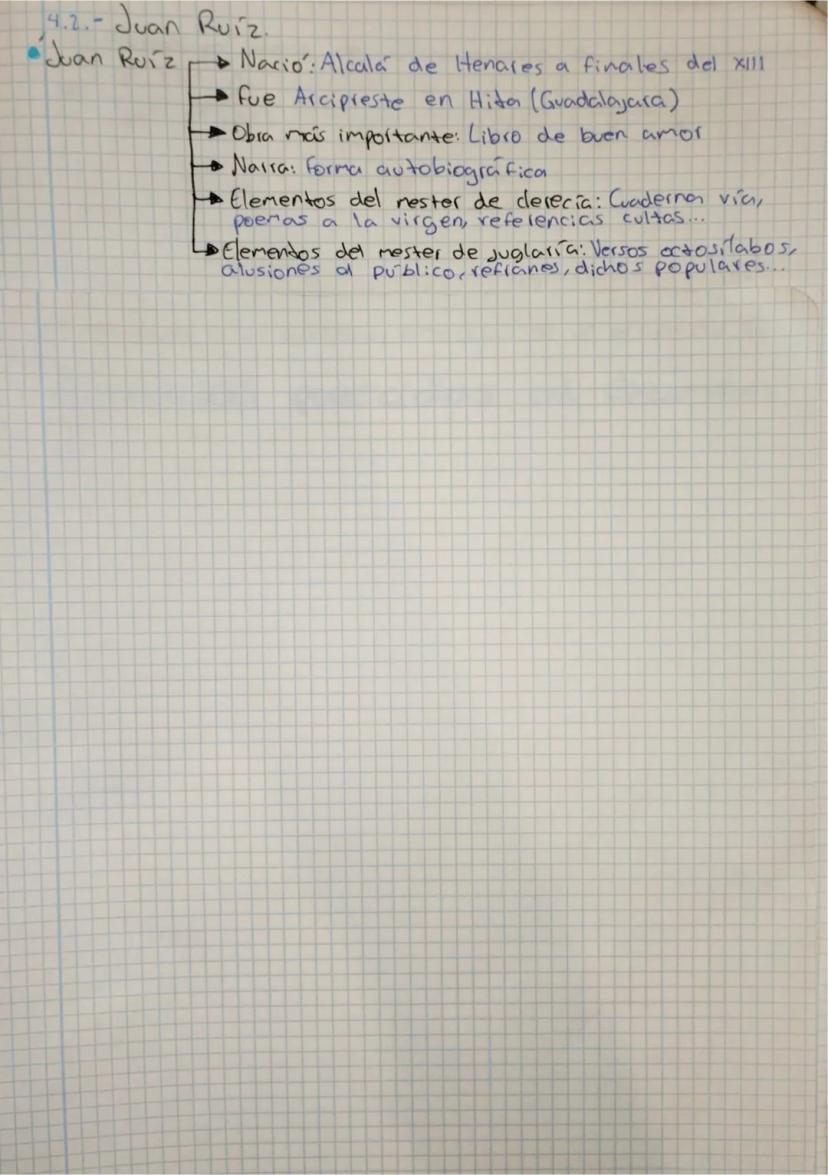 4.2.- Juan Ruíz.
Juan Ruíz → Nació: Alcalá de Henares a finales del XIII
→ Fue Arcipreste en Hita (Guadalajara)
→ Obra más importante: Libro de buen amor
→ Narra: Forma autobiográfica
→ Elementos del mester de clerecía: Cuaderna vía,
poemas a la virgen, referencias cultas...
→ Elementos del mester de juglaría: Versos octosílabos,
alusiones al público, refranes, dichos populares...